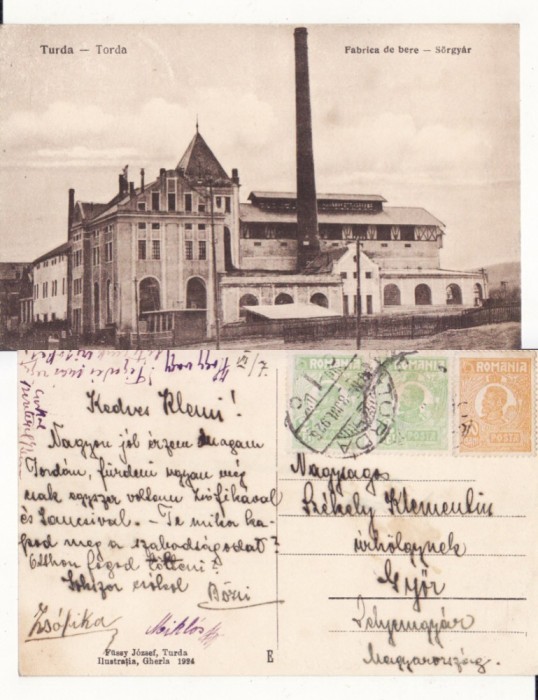 Turda — Torda
Fabrica de bere — Sörgyár
Kedves Klemi!
Nagyon jól érzem magam
Tordán, fürdeni ugyan még
csak egyszer voltam Zsófikával
és Lancsival. — Te mikor ka-
pod meg a szabadságodat?
Otthon fogod tölteni?
Sokszor csókol
Bözsi
Zsófika
Miklós
Füssy József, Turda
Ilustrația, Gherla 1924
E
ROMANIA
POSTA
ROMANIA
POSTA
ROMANIA
POSTA
TURDA
Nagysagos
Székely Klementin
úrhölgynek
Győr
Magyarország.